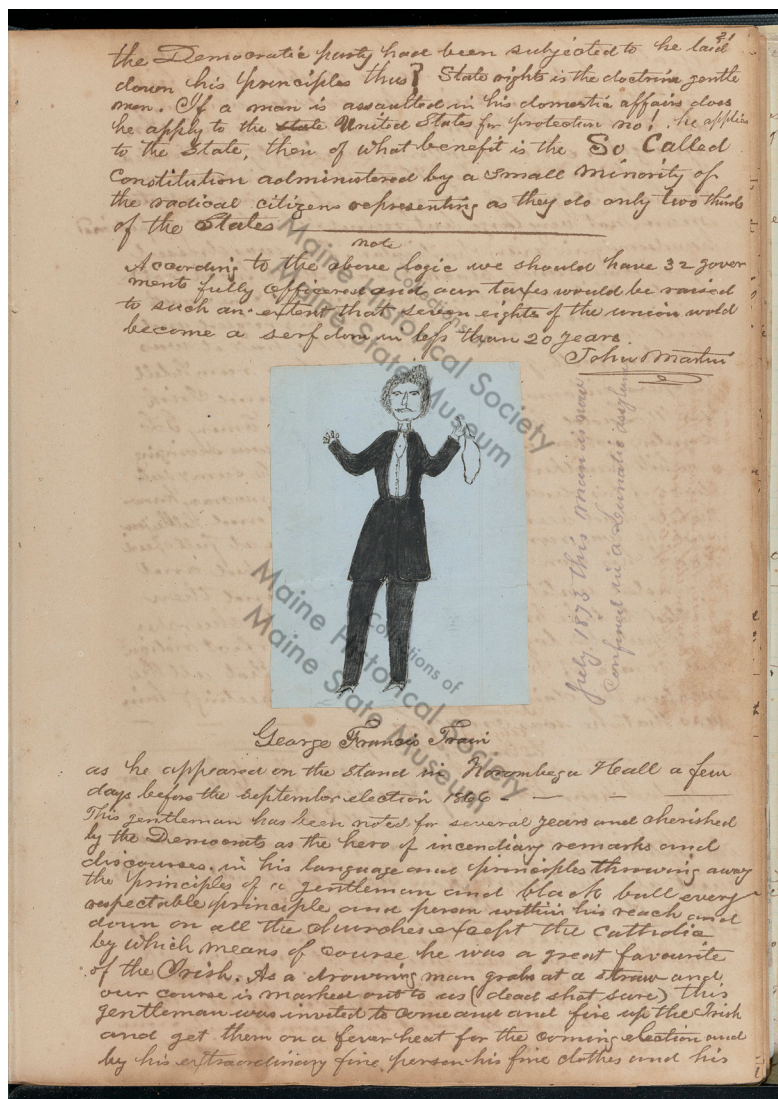 21
the Democratic party have been subjected to he laid
down his principles thus} State rights is the doctrine gentle
men. If a man is assaulted in his domestic affairs does
he apply to the state United States for protection no! he applies
to the State, then of what benefit is the So Called
Constitution administered by a Small minority of
the radical citizens representing as they do only two thirds
of the States
note
According to the above logic we should have 32 gover
ments fully officered and our taxes would be raised
to such an extent that seven eights of the union wold
become a serfdom in less than 20 years.
John Martin
July 1873 this man is now
Confined in a Lunatic Asylum
George Francis Train
as he appeared on the stand in Norombega Hall a few
days before the September election 1866
This gentleman has been noted for several years and cherished
by the Democrats as the hero of incendiary remarks and
discourses. in his language and principles throwing away
the principles of a gentleman and black ball every
respectable principle and person within his reach and
down on all the churches except the Catholic
by which means of course he was a great favourite
of the Irish. As a drowning man grabs at a straw and
our course is marked out to us (dead shot sure) this
gentleman was invited to come and and fire up the Irish
and get them on a fever heat for the coming election and
by his extraordinary fine person his fine clothes and his
Collections of
Maine Historical Society
Maine State Museum
Collections of
Maine Historical Society
Maine State Museum